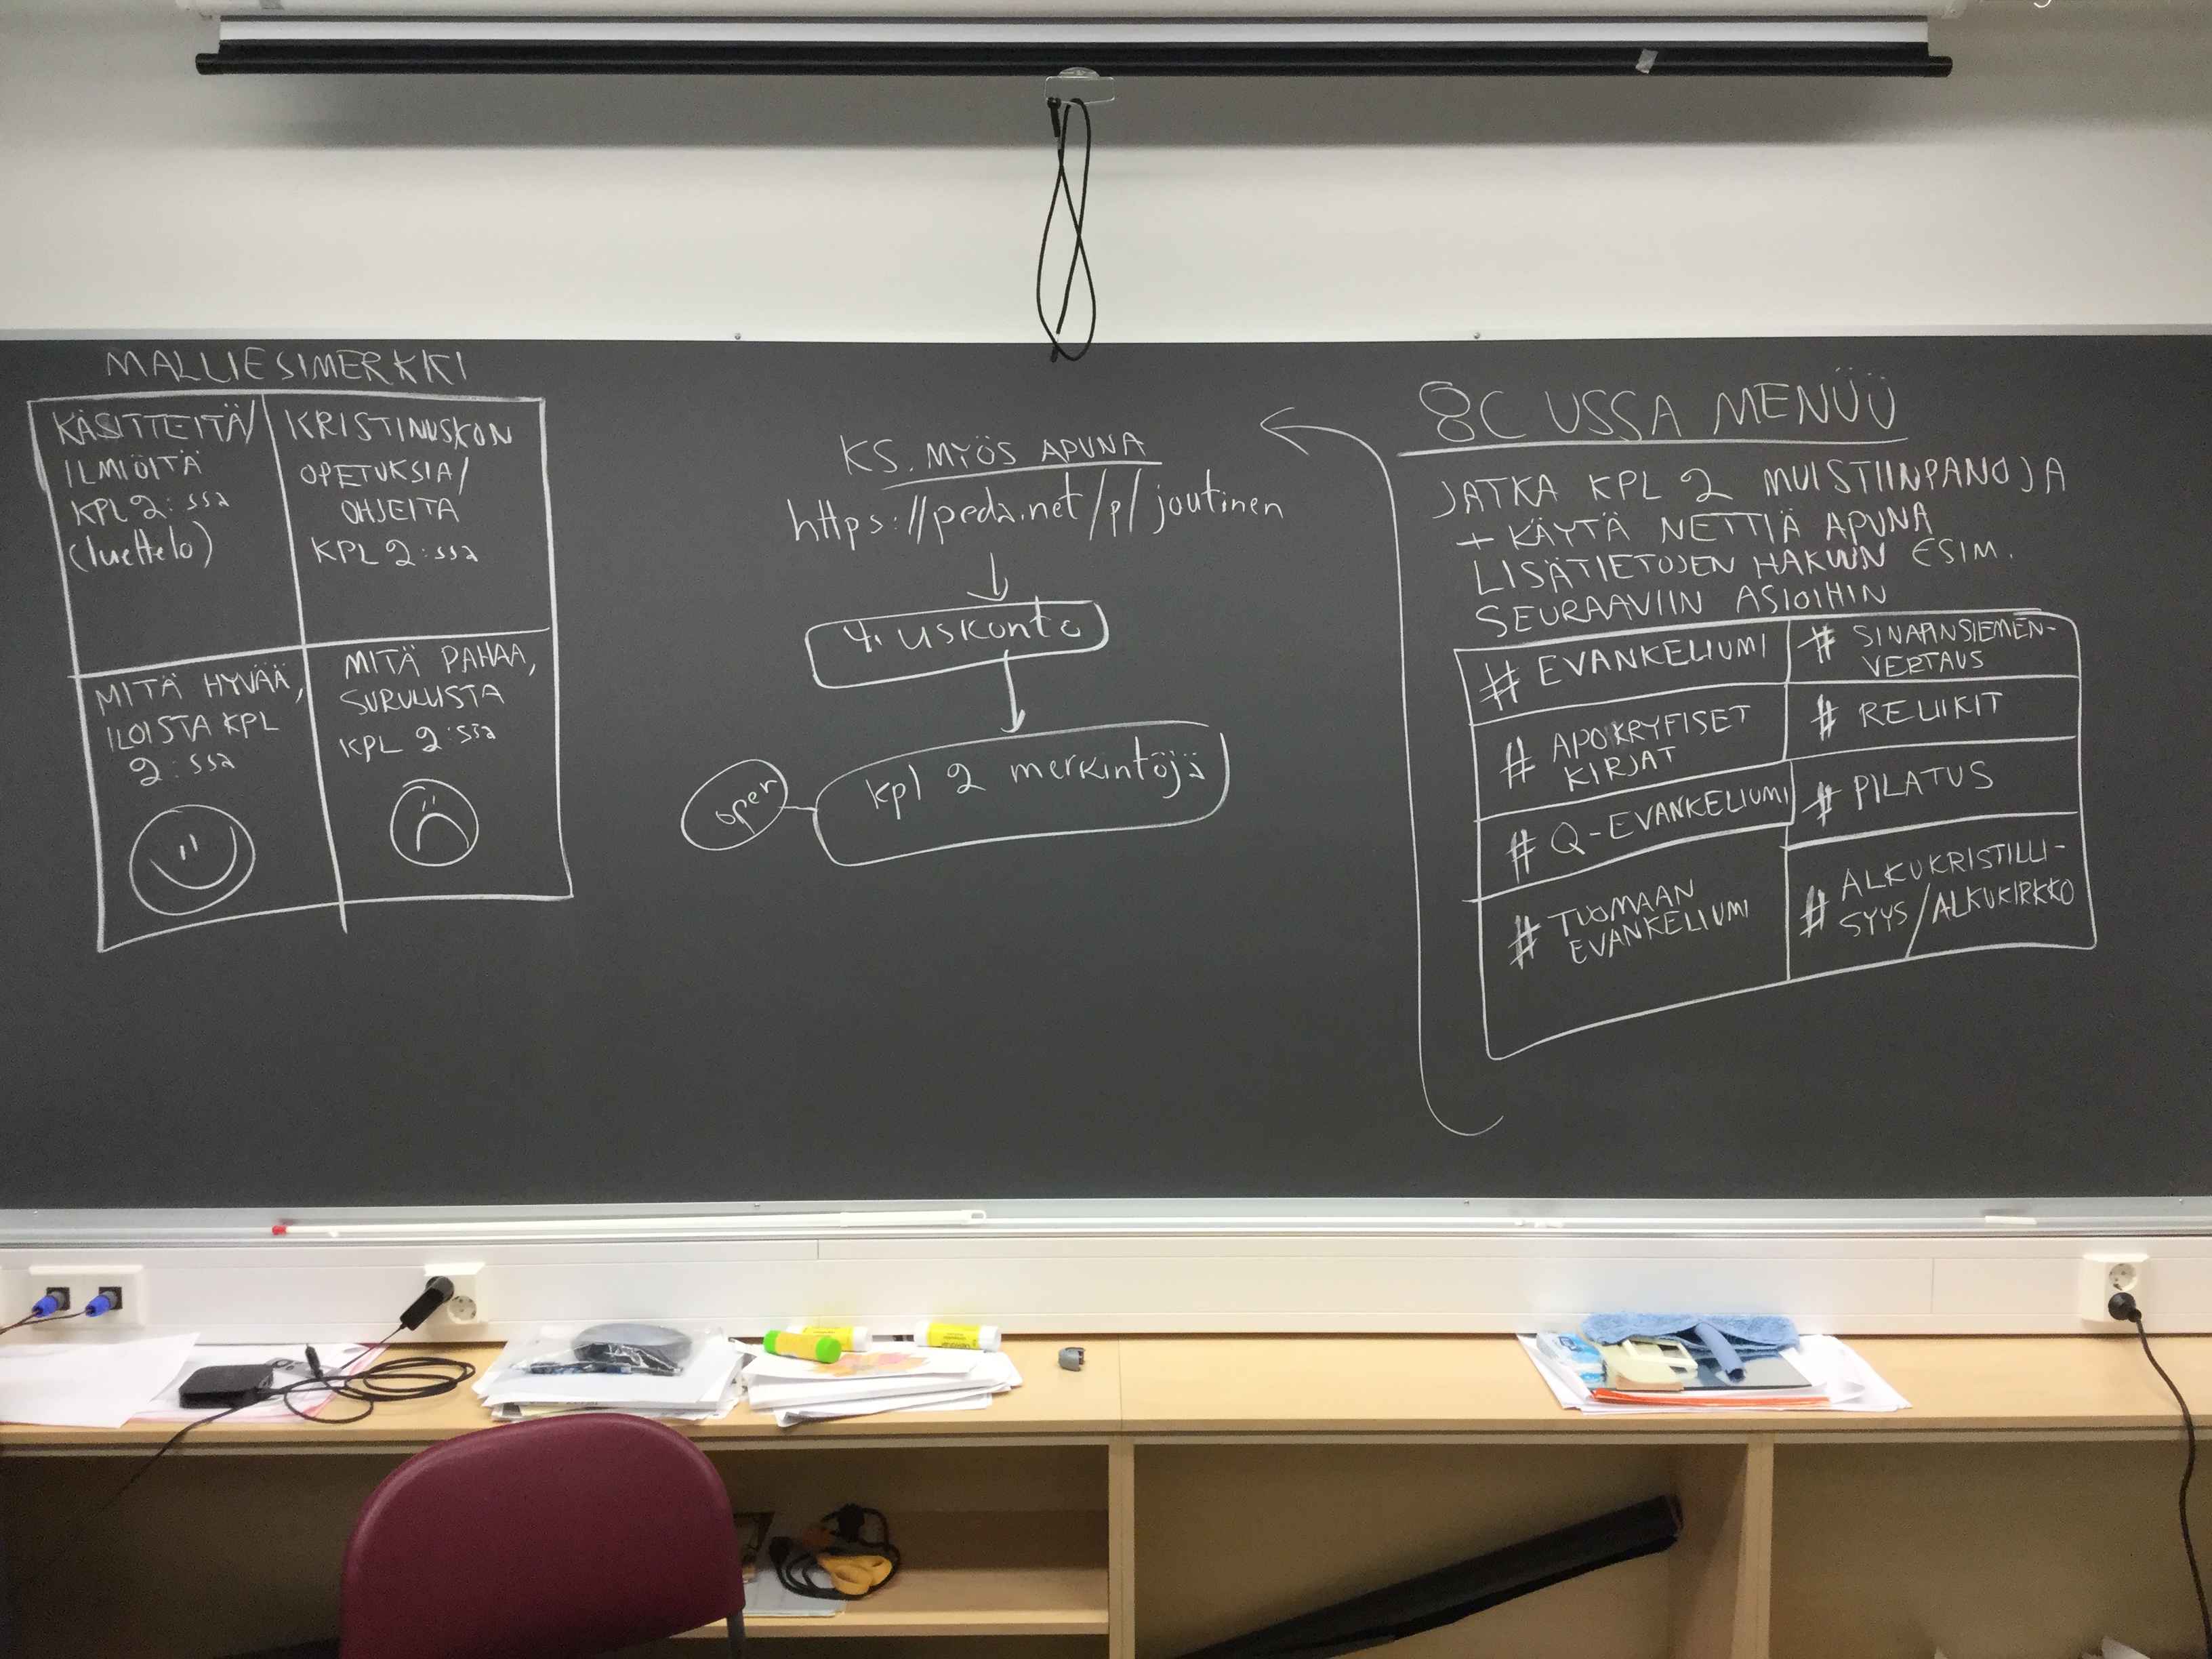 MALLIESIMERKKI
KÄSITTEITÄ/
ILMIÖITÄ
KPL 2:ssa
(luettelo)
KRISTINUSKON
OPETUKSIA/
OHJEITA
KPL 2:ssa
MITÄ HYVÄÄ,
ILOISTA KPL
2:ssa
MITÄ PAHAA,
SURULLISTA
KPL 2:ssa
KS. MYÖS APUNA
https://peda.net/p/joutinen
4. uskonto
open
kpl 2 merkintöjä
8C USSA MENÜÜ
JATKA KPL 2 MUISTIINPANOJA
+ KÄYTÄ NETTIÄ APUNA
LISÄTIETOJEN HAKUUN ESIM.
SEURAAVIIN ASIOIHIN
# EVANKELIUMI
# SINAPINSIEMEN-
VERTAUS
# APOKRYFISET
KIRJAT
# RELIIKIT
# Q-EVANKELIUMI
# PILATUS
# TUOMAAN
EVANKELIUMI
# ALKUKRISTILLI-
SYYS/ALKUKIRKKO